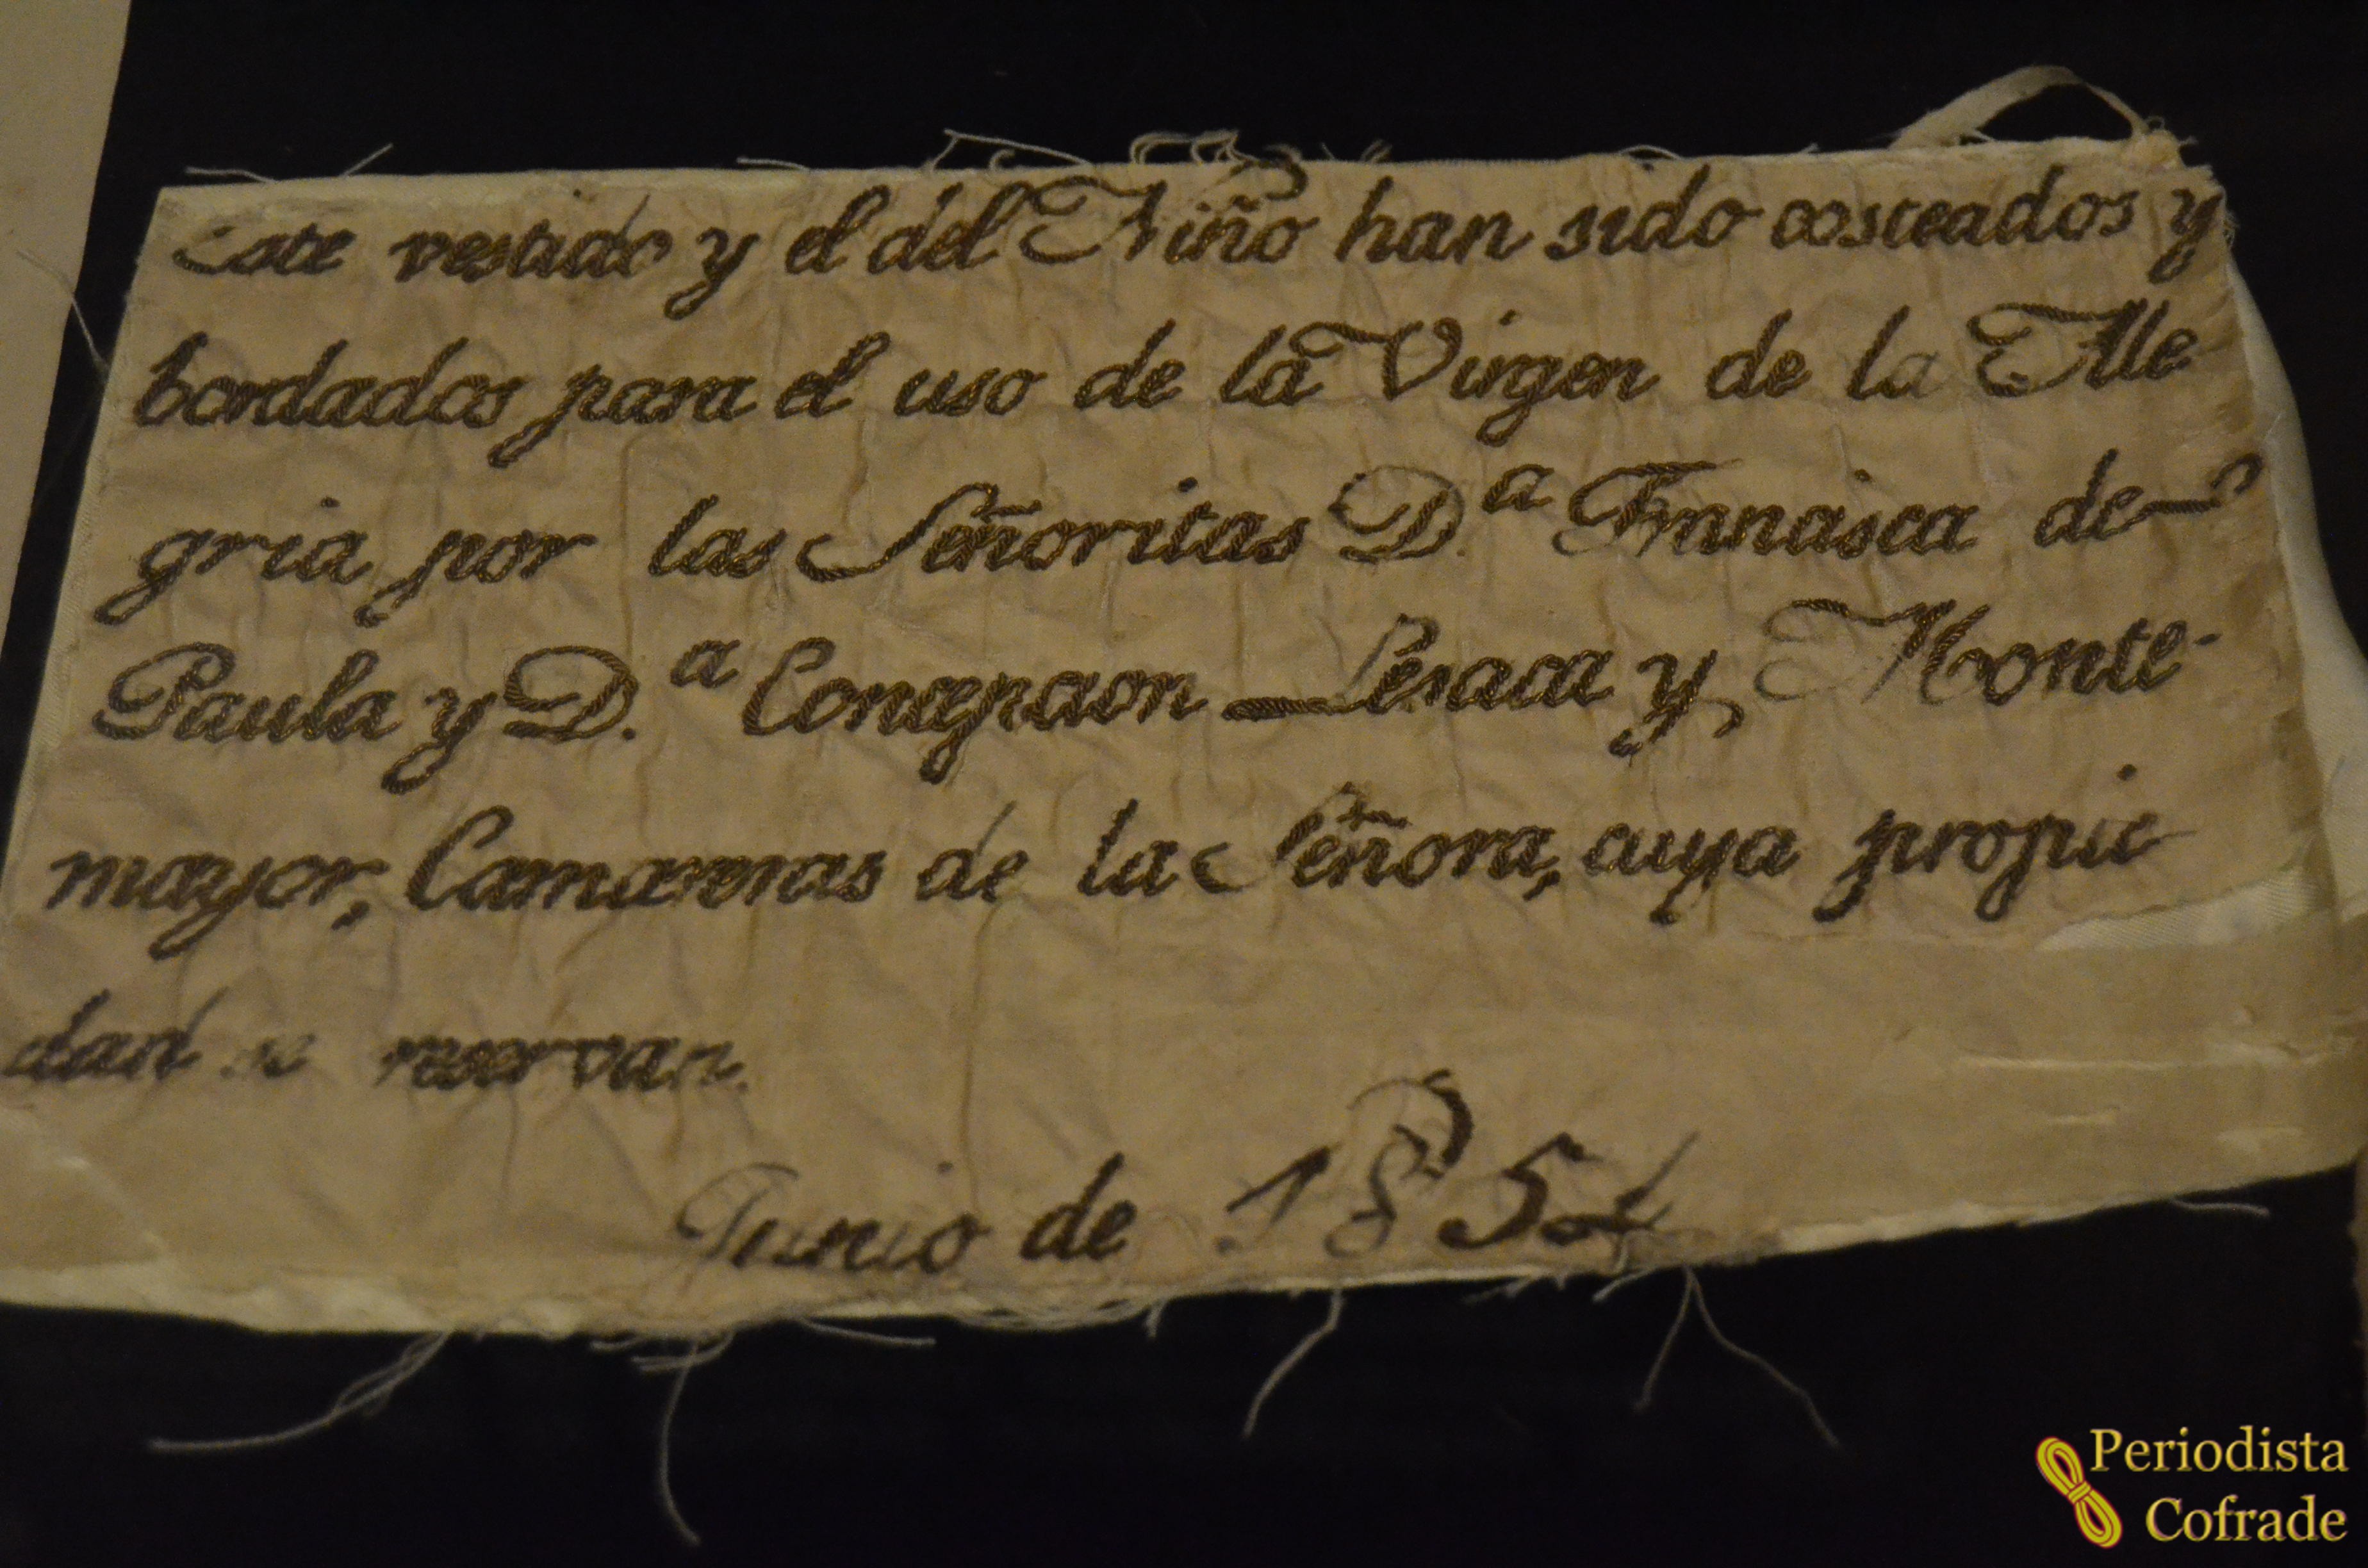 Este vestido y el del Niño han sido costeados y
bordados para el uso de la Virgen de la Ale
gria por las Señoritas D.ª Francisca de
Paula y D.ª Concepcion Lesaca y Monte-
mayor, Camareras de la Señora, cuya propie
dad se reservan.
Junio de 1854
Periodista
Cofrade